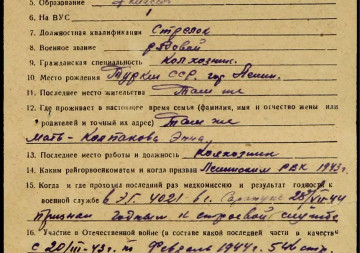 5. Образование 4 класса
6. На ВУС 1
7. Должностная квалификация Стрелок
8. Военное звание рядовой
9. Гражданская специальность Колхозник.
10. Место рождения Туркм ССР. гор Ленин.
11. Последнее место жительства Там же
12. Где проживает в настоящее время семья (фамилия, имя и отчество жены или
родителей и точный их адрес) Там же
мать - Колпакова Энна,
13. Последнее место работы и должность Колхозник
14. Каким райгорвоенкоматом и когда призван Ленинским РВК 1943г.
15. Когда и где проходил последний раз медкомиссию и результат годности к
военной службе в ЭГ 4021 - в г. Сарапуле 28/VII-44
Признан годным к строевой службе
16. Участие в Отечественной войне (в составе какой последней части и в качестве
с 20/III-43г. по Февраль 1944г. 546 стр.